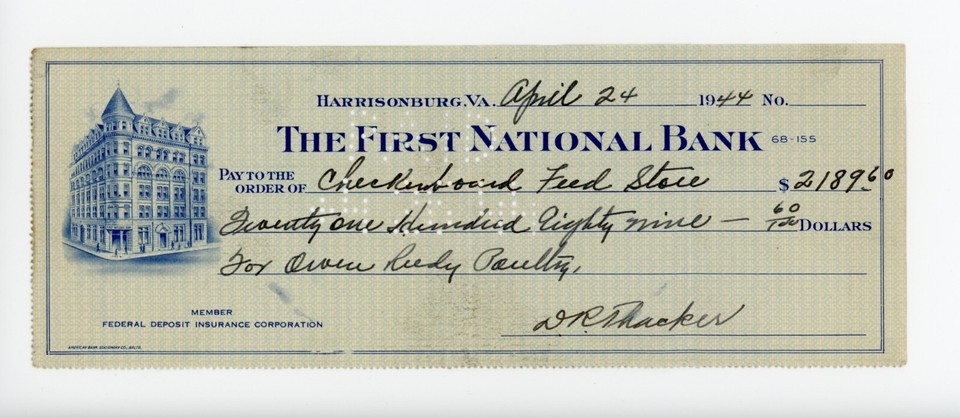 HARRISONBURG, VA. April 24 1944 No.
THE FIRST NATIONAL BANK 68-155
PAY TO THE ORDER OF Checkerboard Feed Store $2189.60
Twenty one Hundred Eighty nine — 60/100 DOLLARS
For Owen Reedy Poultry,
D.R. Thacker
MEMBER
FEDERAL DEPOSIT INSURANCE CORPORATION
AMERICAN BANK STATIONERY CO., BALTO.